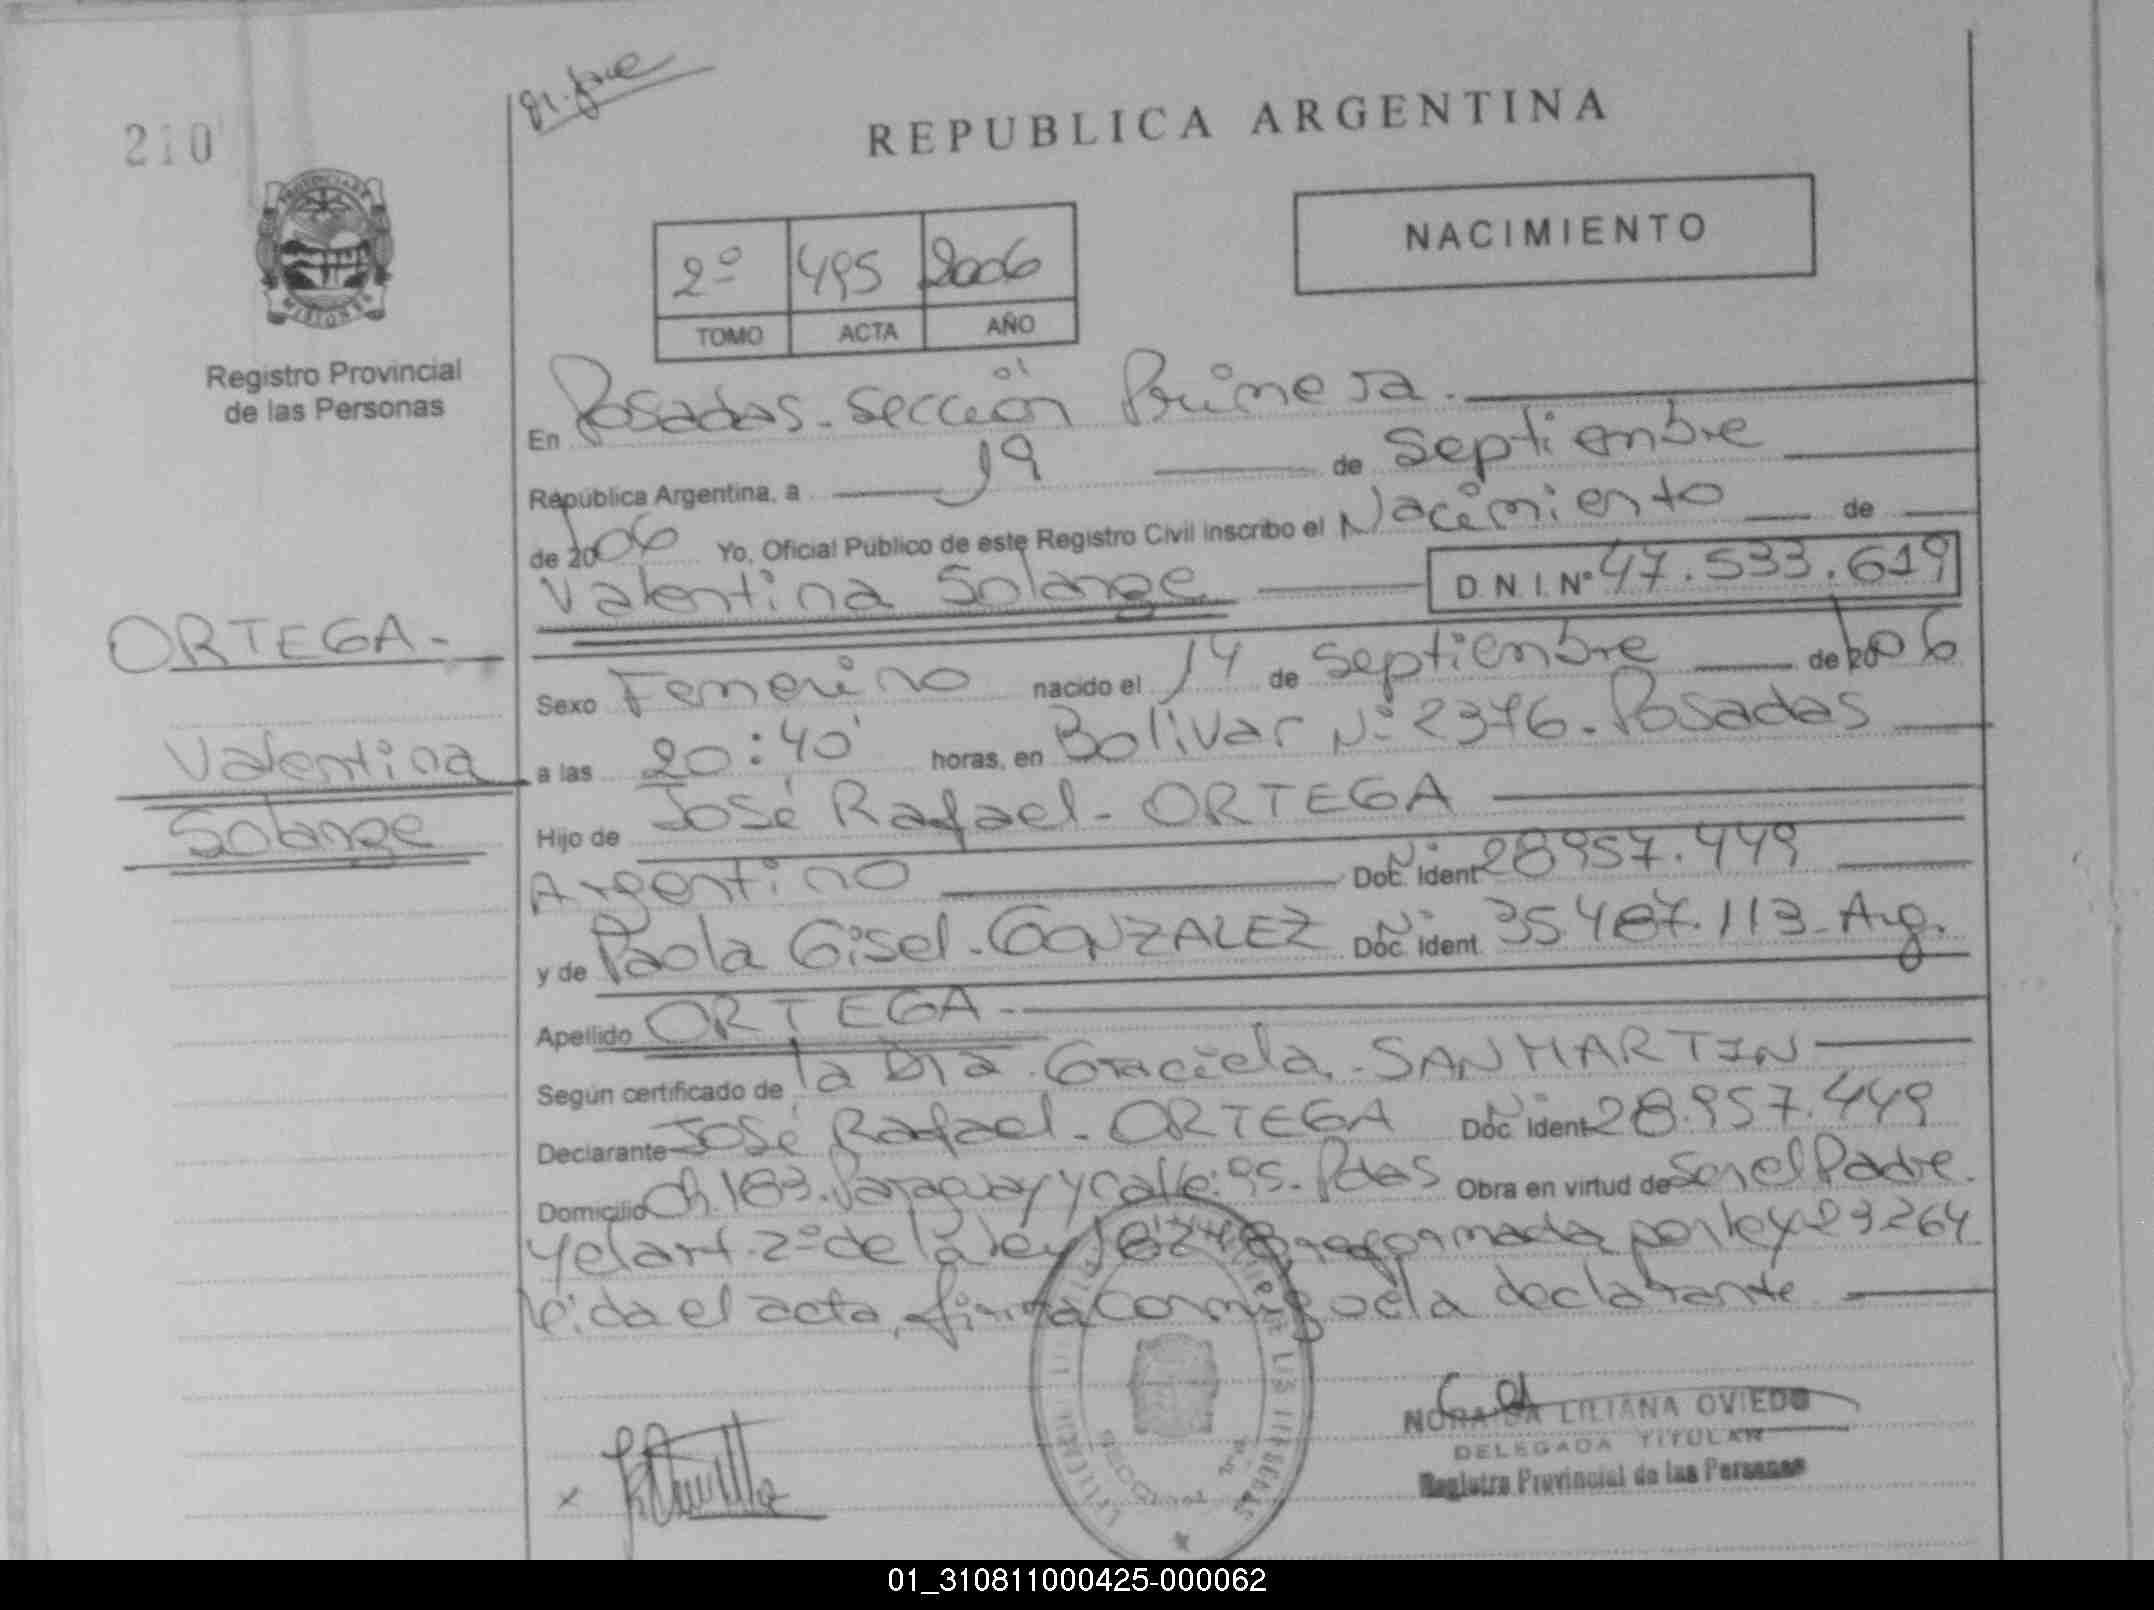 210
REPUBLICA ARGENTINA
NACIMIENTO
2º 495 2006
TOMO ACTA AÑO
Registro Provincial
de las Personas
En Posadas - Sección Primera.
República Argentina, a 19 de Septiembre
de 2006 Yo, Oficial Público de este Registro Civil inscribo el Nacimiento de
Valentina Solange D.N.I. Nº 47.533.619
ORTEGA -
Valentina
Solange
Sexo Femenino nacido el 14 de Septiembre de 2006
a las 20:40 horas, en Bolivar Nº 2376 - Posadas
Hijo de José Rafael - ORTEGA
Argentino Doc. Ident 28957.449
y de Paola Gisel - GONZALEZ Doc. Ident. 35487.113 - Arg.
Apellido ORTEGA -
Según certificado de la Dra. Graciela - SANMARTIN
Declarante José Rafael - ORTEGA Doc. Ident 28.957.449
Domicilio Ch. 183. Paraguay y calle 95 - Pdas Obra en virtud de Ser el Padre.
y el art. 2º de la ley 18248 reformada por ley 23264
leida el acta, firma conmigo el a declarante
NORAIDA LILIANA OVIEDO
DELEGADA TITULAR
Registro Provincial de las Personas
01_310811000425-000062